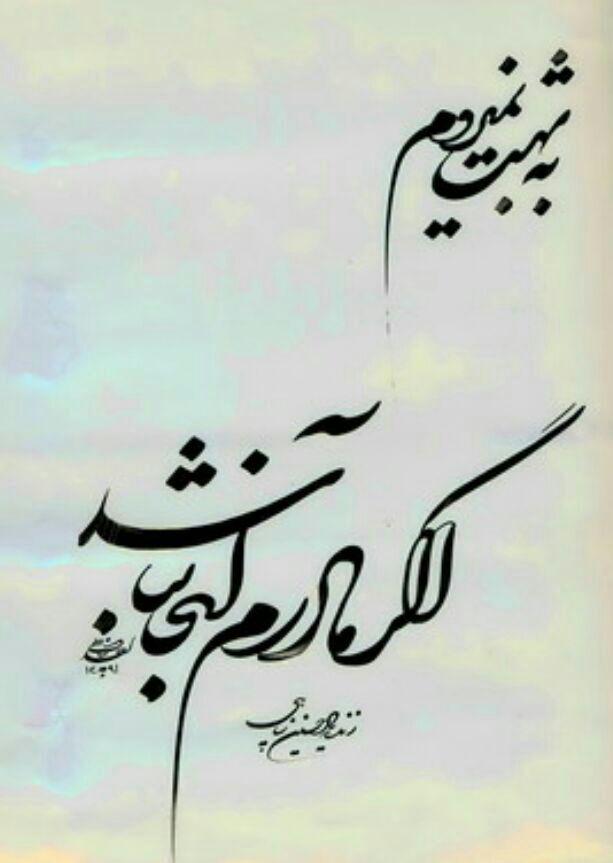 به بهشت نمیروم
اگر مادرم آنجا نباشد
زنده یاد حسین پناهی